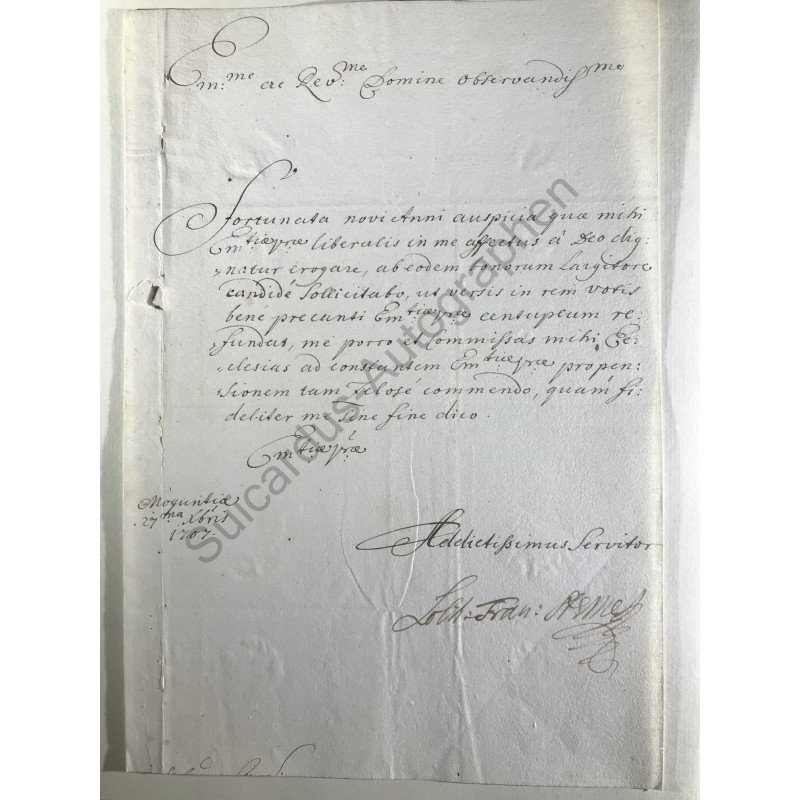 Em:me ac Rev:me Domine Observandissme
Fortunata novi Anni auspicia quæ mihi
Emtiæ præ liberalis in me affectus á Deo dig,
,,natur érogare, ab eodem bonorum Largitore
candidé Sollicitabo, ut versis in rem votis
bené precanti Emtiæ præ centuplum re,
,,fundat, me porro et Commissas mihi Ec,
,,clesias ad constantem Emtiæ præ propen,
,,sionem tam Zelosé commendo, quám fi,
deliter me Sine fine dico.
Emtiæ præ
Moguntiæ
27ma Xbris
1707.
Addictissimus Servitor
Loth: Fran:
Suicardus-Autographen